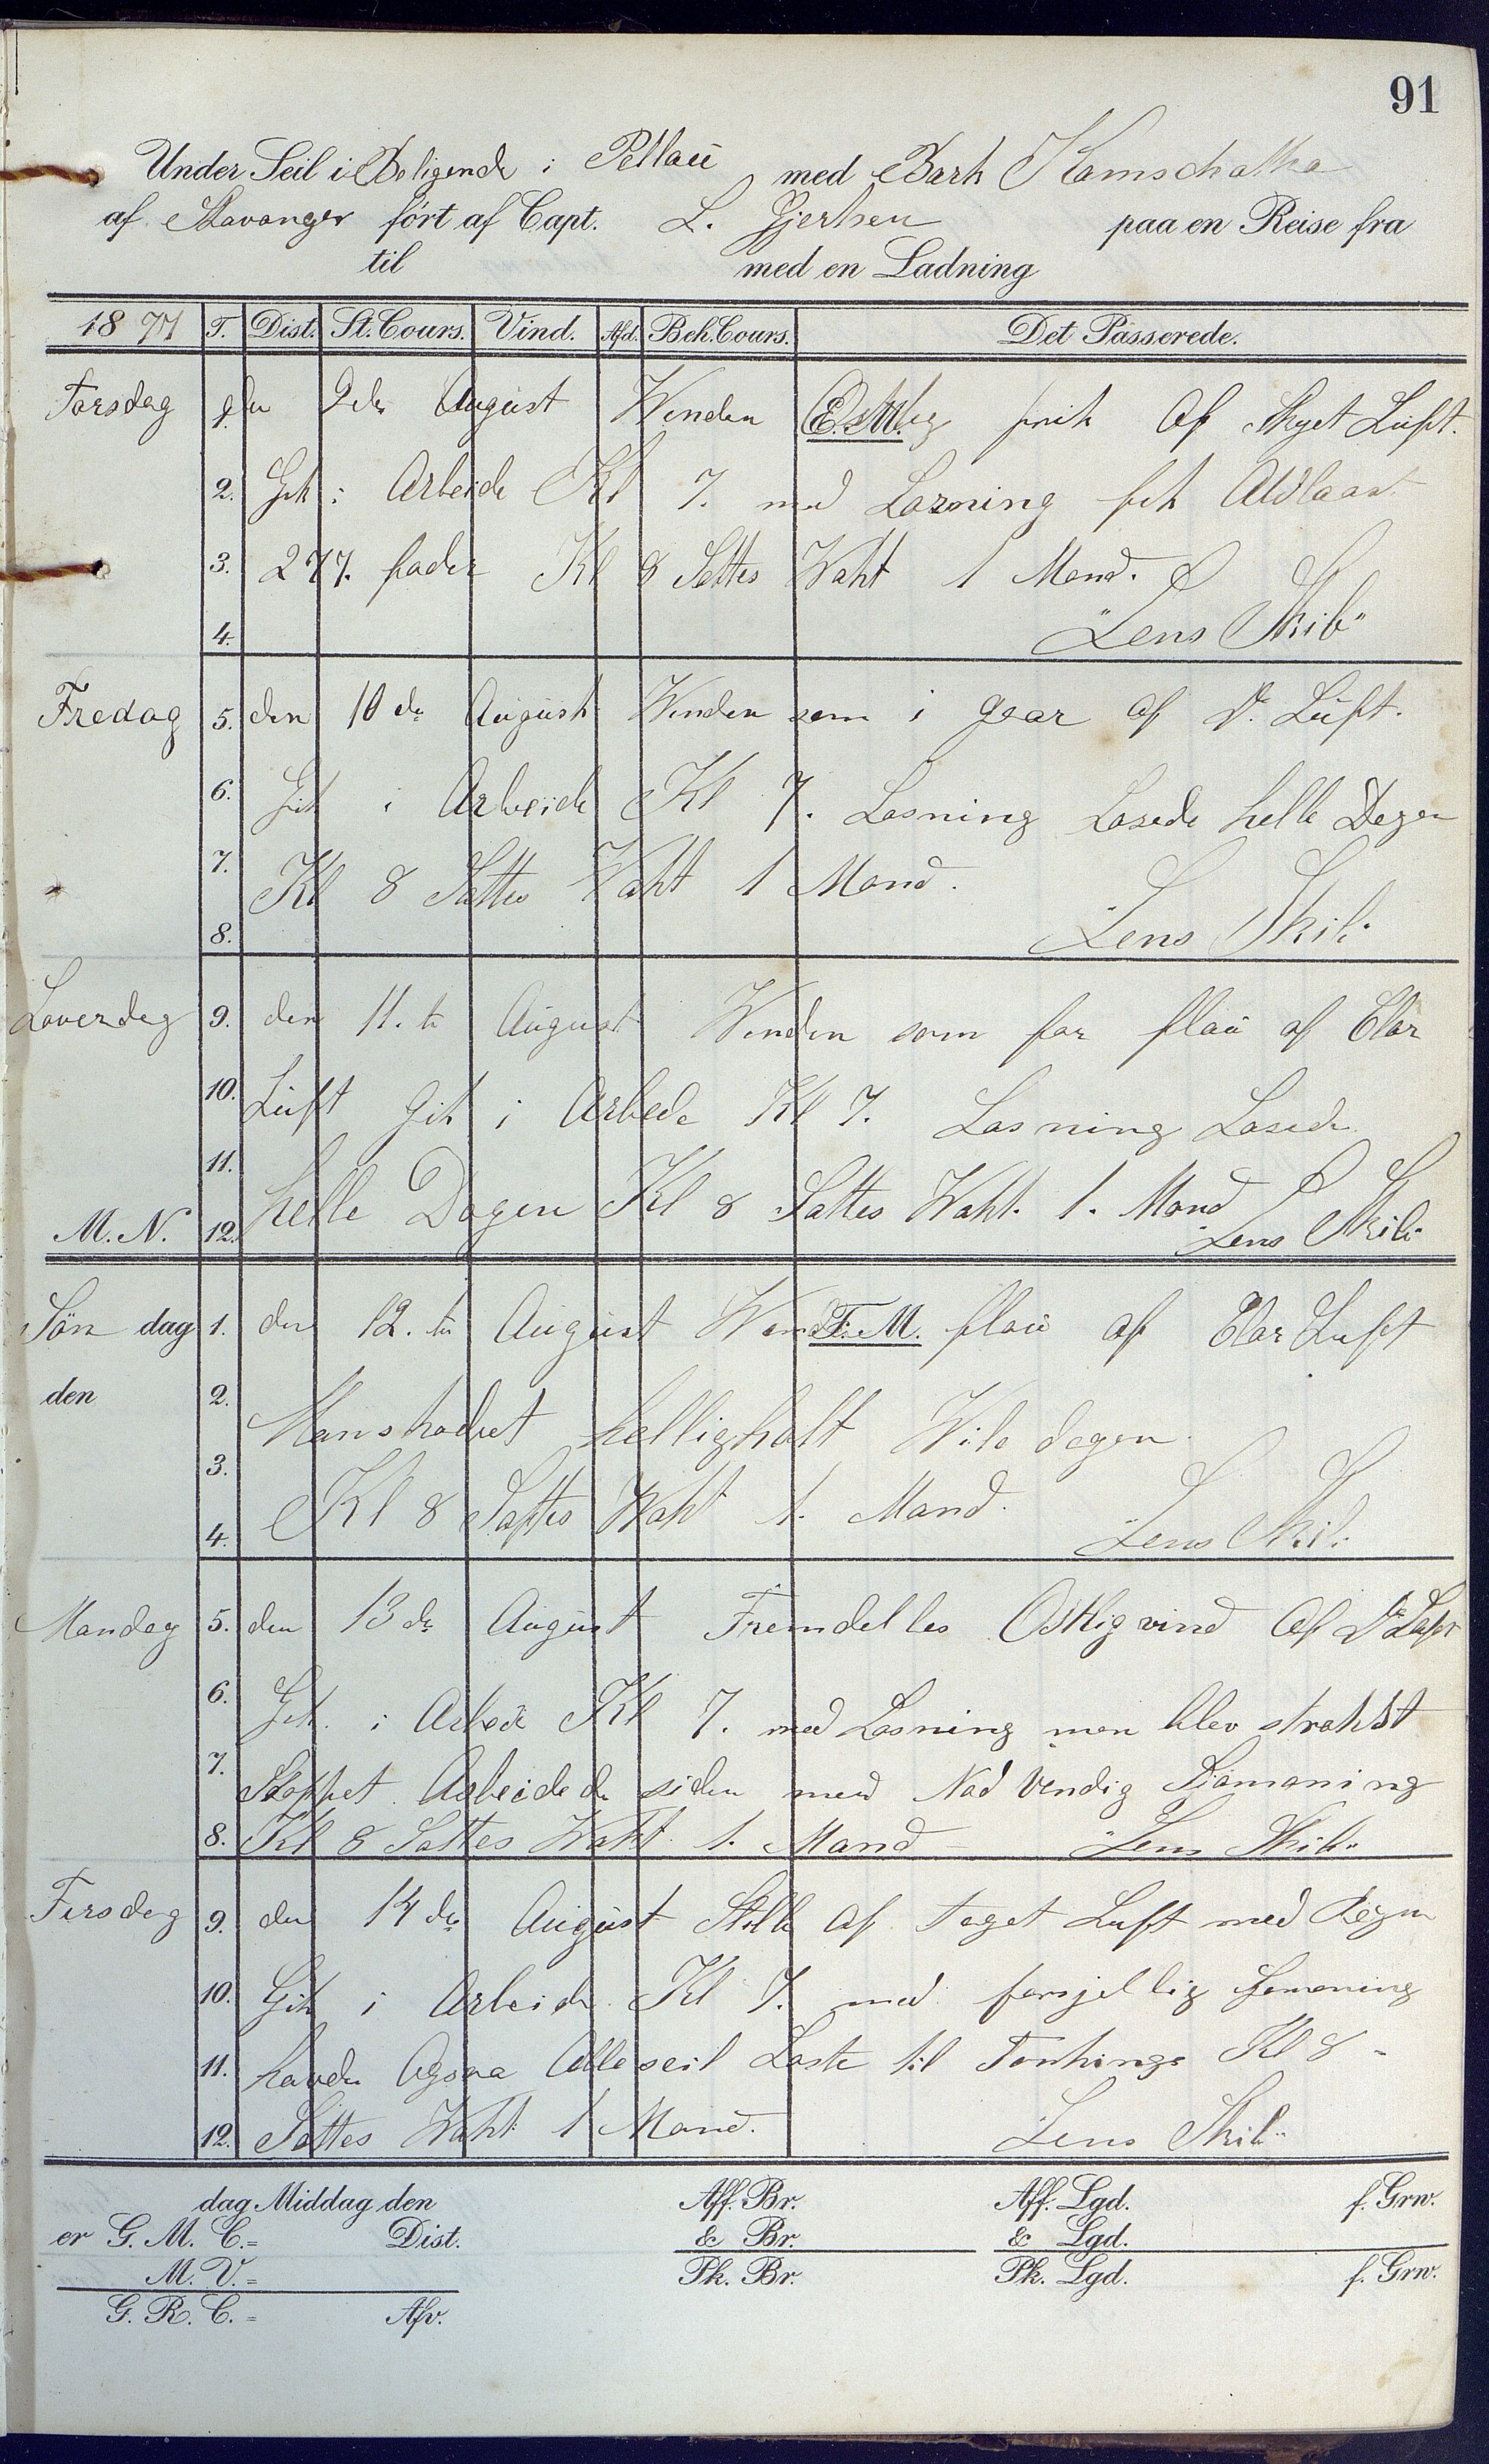 91
Under Seil i Beligende i Pillau med Bark Kamschatka
af Stavanger fört af Capt. L. Gjertsen paa en Reise fra
til med en Ladning
1877 T. Dist. St. Cours. Vind. Afd. Beh. Cours. Det Passerede.
Torsdag 1. den 9de August Winden E.M. Østlig frisk af Skyet Luft.
2. Gik i Arbeide Kl 7. med Losning fik Udlaast
3. 277. fader Kl 8 Sattes Waht 1 Mand.
4. "Lens Skib"
Fredag 5. den 10de August Winden som i gaar af Do Luft.
6. Gik i Arbeide Kl 7. Losning Losede helle Dagen
7. Kl 8 Sattes Waht 1 Mand.
8. "Lens Skib"
Loverdag 9. den 11.te August Winden som for flau af Clar
10. Luft Gik i Arbede Kl 7. Losning Losede
11. helle Dagen Kl 8 Sattes Waht. 1. Mand
M. N. 12. "Lens Skib"
Søn dag 1. den 12.te August Wind F. M. flau af Clar Luft
den 2. Manskabet helligholt Wile dagen
3. Kl 8 Sattes Waht 1. Mand.
4. "Lens Skib"
Mandag 5. den 13de August Fremdelles Ostlig vind Af Do Luft
6. Gik i Arbede Kl 7. med Losning men blev strakst
7. Stoppet Arbeidede siden med Nødvendig Sjömaning
8. Kl 8 Sattes Waht 1. Mand "Lens Skib"
Tirsdag 9. den 14de August Stille af Taget Luft med Regn
10. Gik i Arbeide Kl 7. med forsjellig
11. havde Ogsaa Alle seil Løste til Torkings Kl 8
12. Sattes Waht 1 Mand. "Lens Skib"
dag Middag den Aff. Br. Aff. Lgd. f. Grw.
er G. M. C.= Dist. & Br. & Lgd.
M. V.= Pk. Br. Pk. Lgd. f. Grw.
G. R. C.= Afv.